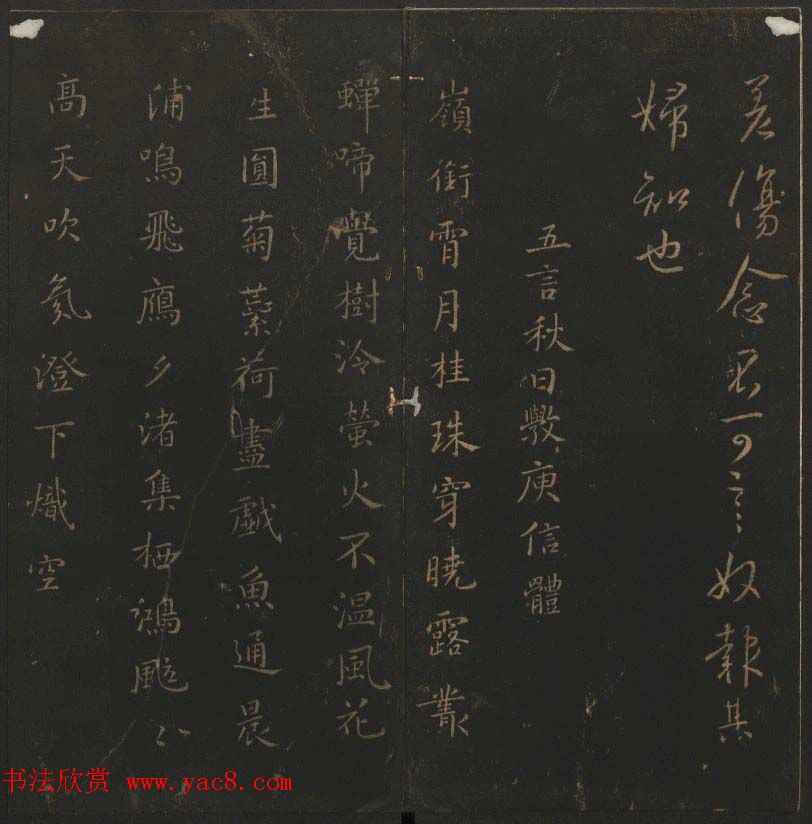 傷念可言奴報其
婦知也
五言秋日斆庾信體
嶺銜宵月桂珠穿曉露叢
蟬啼覺樹冷螢火不温風花
生圓菊蘂荷盡戲魚通晨
浦鳴飛鴈夕渚集栖鴻颯〻
高天吹氛澄下熾空
书法欣赏 www.yac8.com